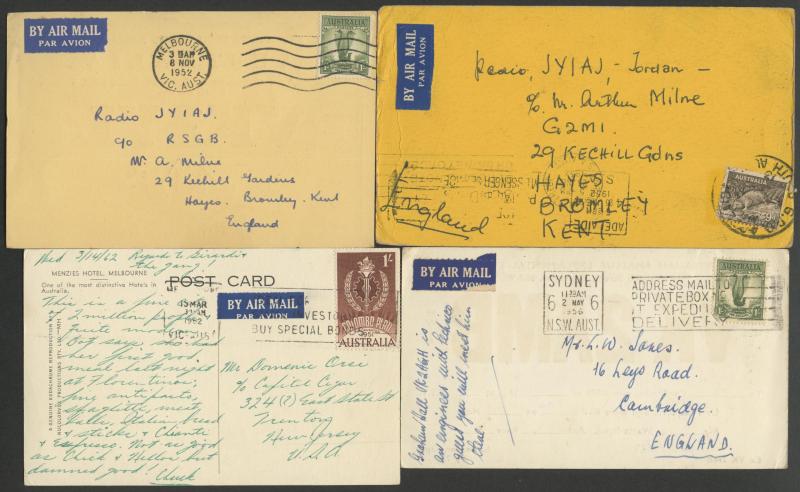 BY AIR MAIL
PAR AVION
MELBOURNE
8 NOV
1952
VIC. AUST.
AUSTRALIA
Radio JY1AJ.
c/o R S G B.
Mr A. Milne
29 Kechill Gardens
Hayes. Bromley. Kent
England
BY AIR MAIL
PAR AVION
Radio, JY1AJ - Jordan -
c/o Mr. Arthur Milne
G2MI.
29 KECHILL Gdns
HAYES
BROMLEY
KENT
England
ADELAIDE
1952
AUSTRALIA
9D
Wed 3/14/62 Regards to
the gang!
MENZIES HOTEL, MELBOURNE
One of the most distinctive Hotels in
Australia.
POST CARD
This is a fine city
of 2 million people
Quite modern.
Dot says, she had
her first good
meal last night
at Florentinos;
fine antipasto,
spaghetti, meat
balls, Italian bread
& sticks & Chianti
& Espresso. Not as good
as Chick & Nellos but
damned good! Chuck
15 MAR
1962
BY AIR MAIL
PAR AVION
BUY SPECIAL BONDS
1/-
COLOMBO PLAN
AUSTRALIA
Mr Domenic Orsi
c/o Capitol Cigar
324 (?) East State St
Trenton
New Jersey
U.S.A
BY AIR MAIL
PAR AVION
SYDNEY
2 MAY
6 1956 6
N.S.W. AUST.
ADDRESS MAIL TO
PRIVATE BOX N
IT EXPEDITES
DELIVERY
AUSTRALIA
Mr. L. W. Jones.
16 Leys Road.
Cambridge.
ENGLAND.
Graham Hall is
an engineer with
you will meet him
there.